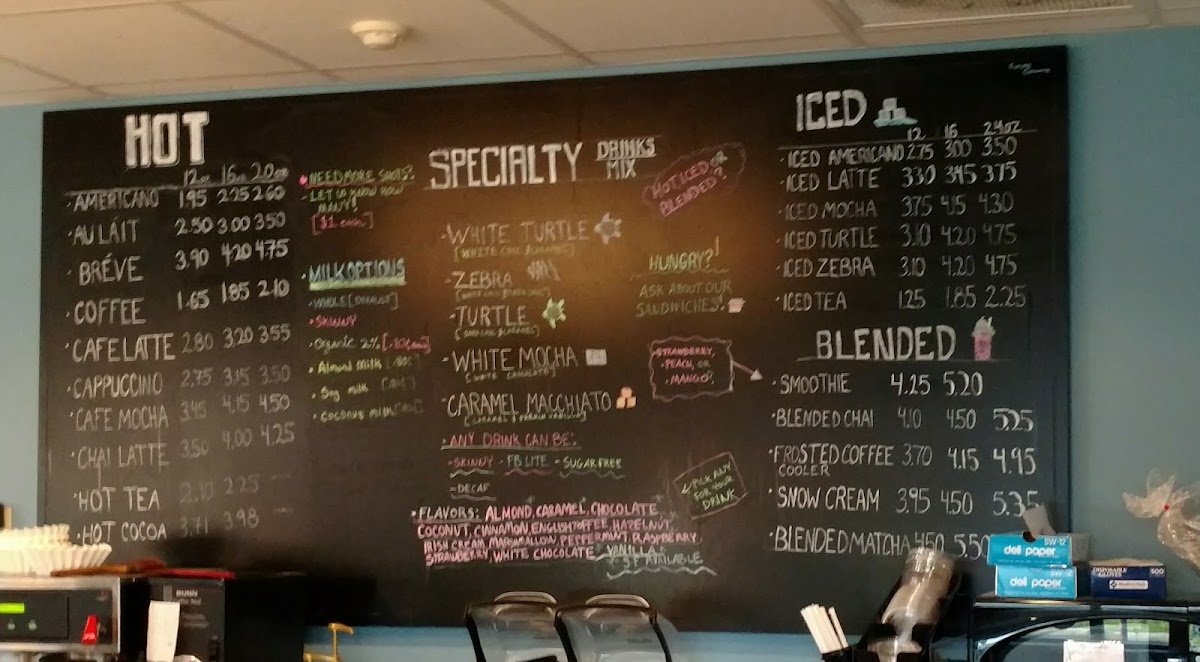 HOT
12oz 16oz 20oz
AMERICANO 1.95 2.25 2.60
AU LÁIT 2.50 3.00 3.50
BRÉVE 3.90 4.20 4.75
COFFEE 1.65 1.85 2.10
CAFE LATTE 2.80 3.20 3.55
CAPPUCCINO 2.75 3.15 3.50
CAFE MOCHA 3.45 4.15 4.50
CHAI LATTE 3.50 4.00 4.25
HOT TEA 2.10 2.25
HOT COCOA 3.71 3.98
NEED MORE SHOTS?
LET US KNOW HOW
MANY!
[$1 each]
MILK OPTIONS
WHOLE [DEFAULT]
SKINNY
Organic 2%
Almond Milk
Soy milk
Coconut milk
SPECIALTY DRINKS
MIX
HOT, ICED OR
BLENDED?
WHITE TURTLE
[WHITE CHOC & CARAMEL]
ZEBRA
TURTLE
WHITE MOCHA
[WHITE CHOCOLATE]
CARAMEL MACCHIATO
HUNGRY?!
ASK ABOUT OUR
SANDWICHES!
STRAWBERRY,
PEACH, OR
MANGO
ANY DRINK CAN BE:
SKINNY - FB LITE - SUGAR FREE
DECAF
PICK ANY
FOR YOUR
DRINK
FLAVORS: ALMOND, CARAMEL, CHOCOLATE,
COCONUT, CINNAMON, ENGLISH TOFFEE, HAZELNUT,
IRISH CREAM, MARSHMALLOW, PEPPERMINT, RASPBERRY,
STRAWBERRY, WHITE CHOCOLATE, VANILLA
* SF AVAILABLE
ICED
12 16 24oz
ICED AMERICANO 2.75 3.00 3.50
ICED LATTE 3.30 3.45 3.75
ICED MOCHA 3.75 4.15 4.30
ICED TURTLE 3.10 4.20 4.75
ICED ZEBRA 3.10 4.20 4.75
ICED TEA 1.25 1.85 2.25
BLENDED
SMOOTHIE 4.25 5.20
BLENDED CHAI 4.10 4.50 5.25
FROSTED COFFEE 3.70 4.15 4.95
COOLER
SNOW CREAM 3.95 4.50 5.35
BLENDED MATCHA 4.50 5.50
SW-12
deli paper
deli paper
DISPOSABLE
GLOVES
500
BUNN